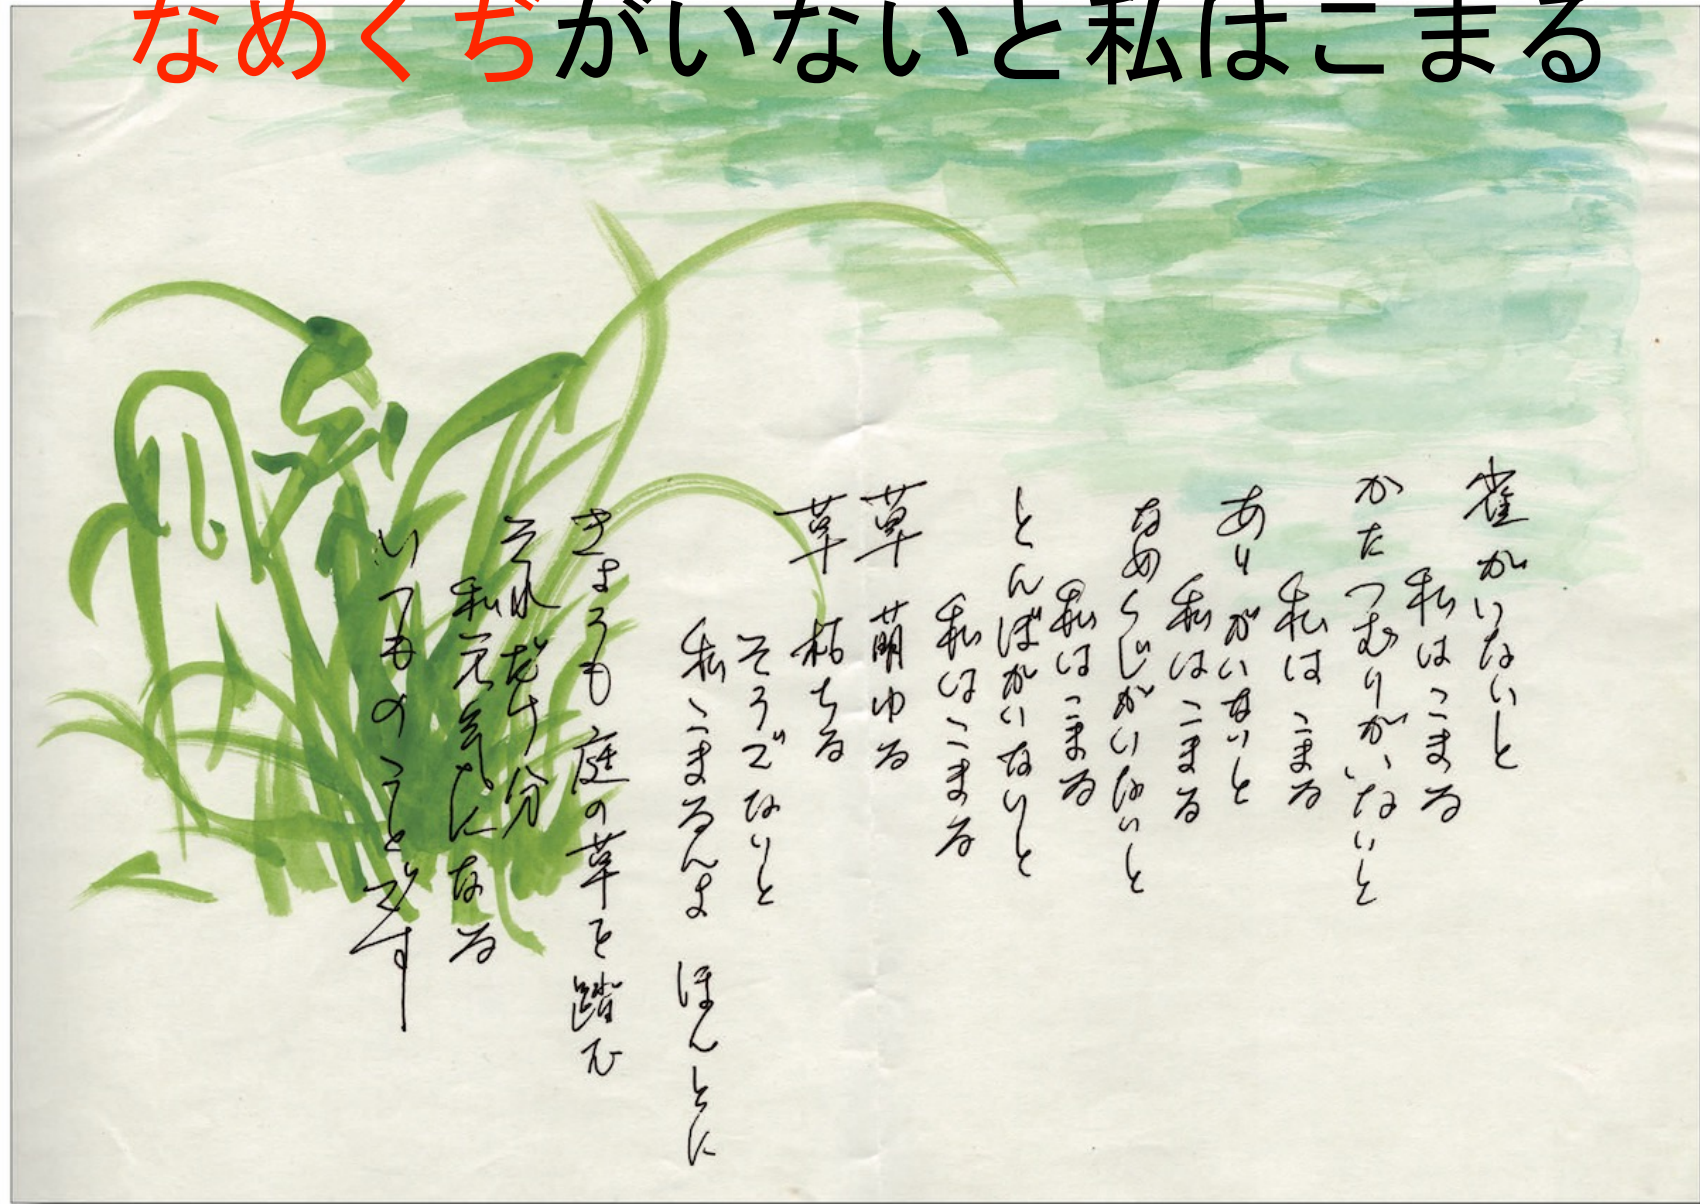 なめくぢがいないと私はこまる
雀がいないと
私はこまる
かたつむりがいないと
私はこまる
ありがいないと
私はこまる
なめくじがいないと
私はこまる
とんぼがいないと
私はこまる
草 萌ゆる
草 枯ちる
そうでないと
私こまるんよ ほんとに
きょうも庭の草を踏む
それだけ分
私元気になる
いつものことです